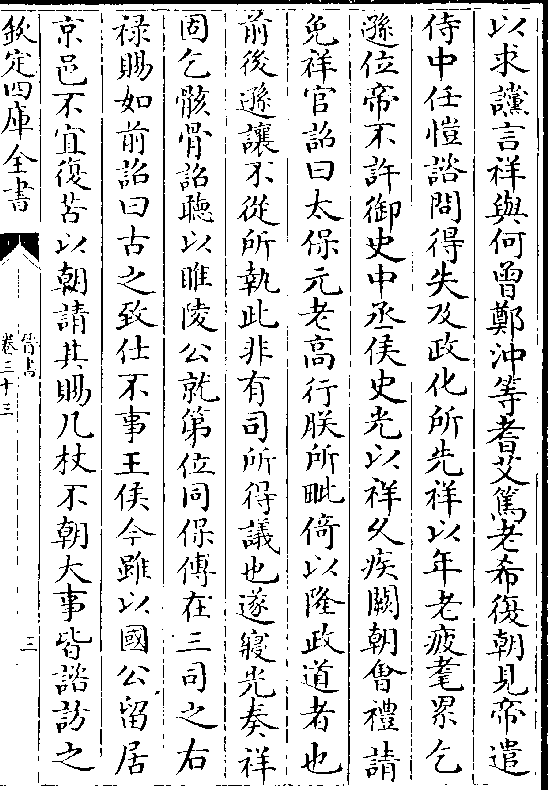 以求讜言祥與何曾鄭沖等耆艾篤老希復朝見帝遣
侍中任愷諮問得失及政化所先祥以年老疲耄累乞
遜位帝不許御史中丞侯史光以祥久疾闕朝㑹禮請
免祥官詔曰太保元老高行朕所毗倚以隆政道者也
前後遜讓不從所執此非有司所得議也遂寢光奏祥
固乞骸骨詔聽以睢陵公就第位同保傅在三司之右
禄賜如前詔曰古之致仕不事王侯今雖以國公留居
京邑不宜復苦以朝請其賜几杖不朝大事皆諮訪之
欽定四庫全書
晉書
卷三十三
三